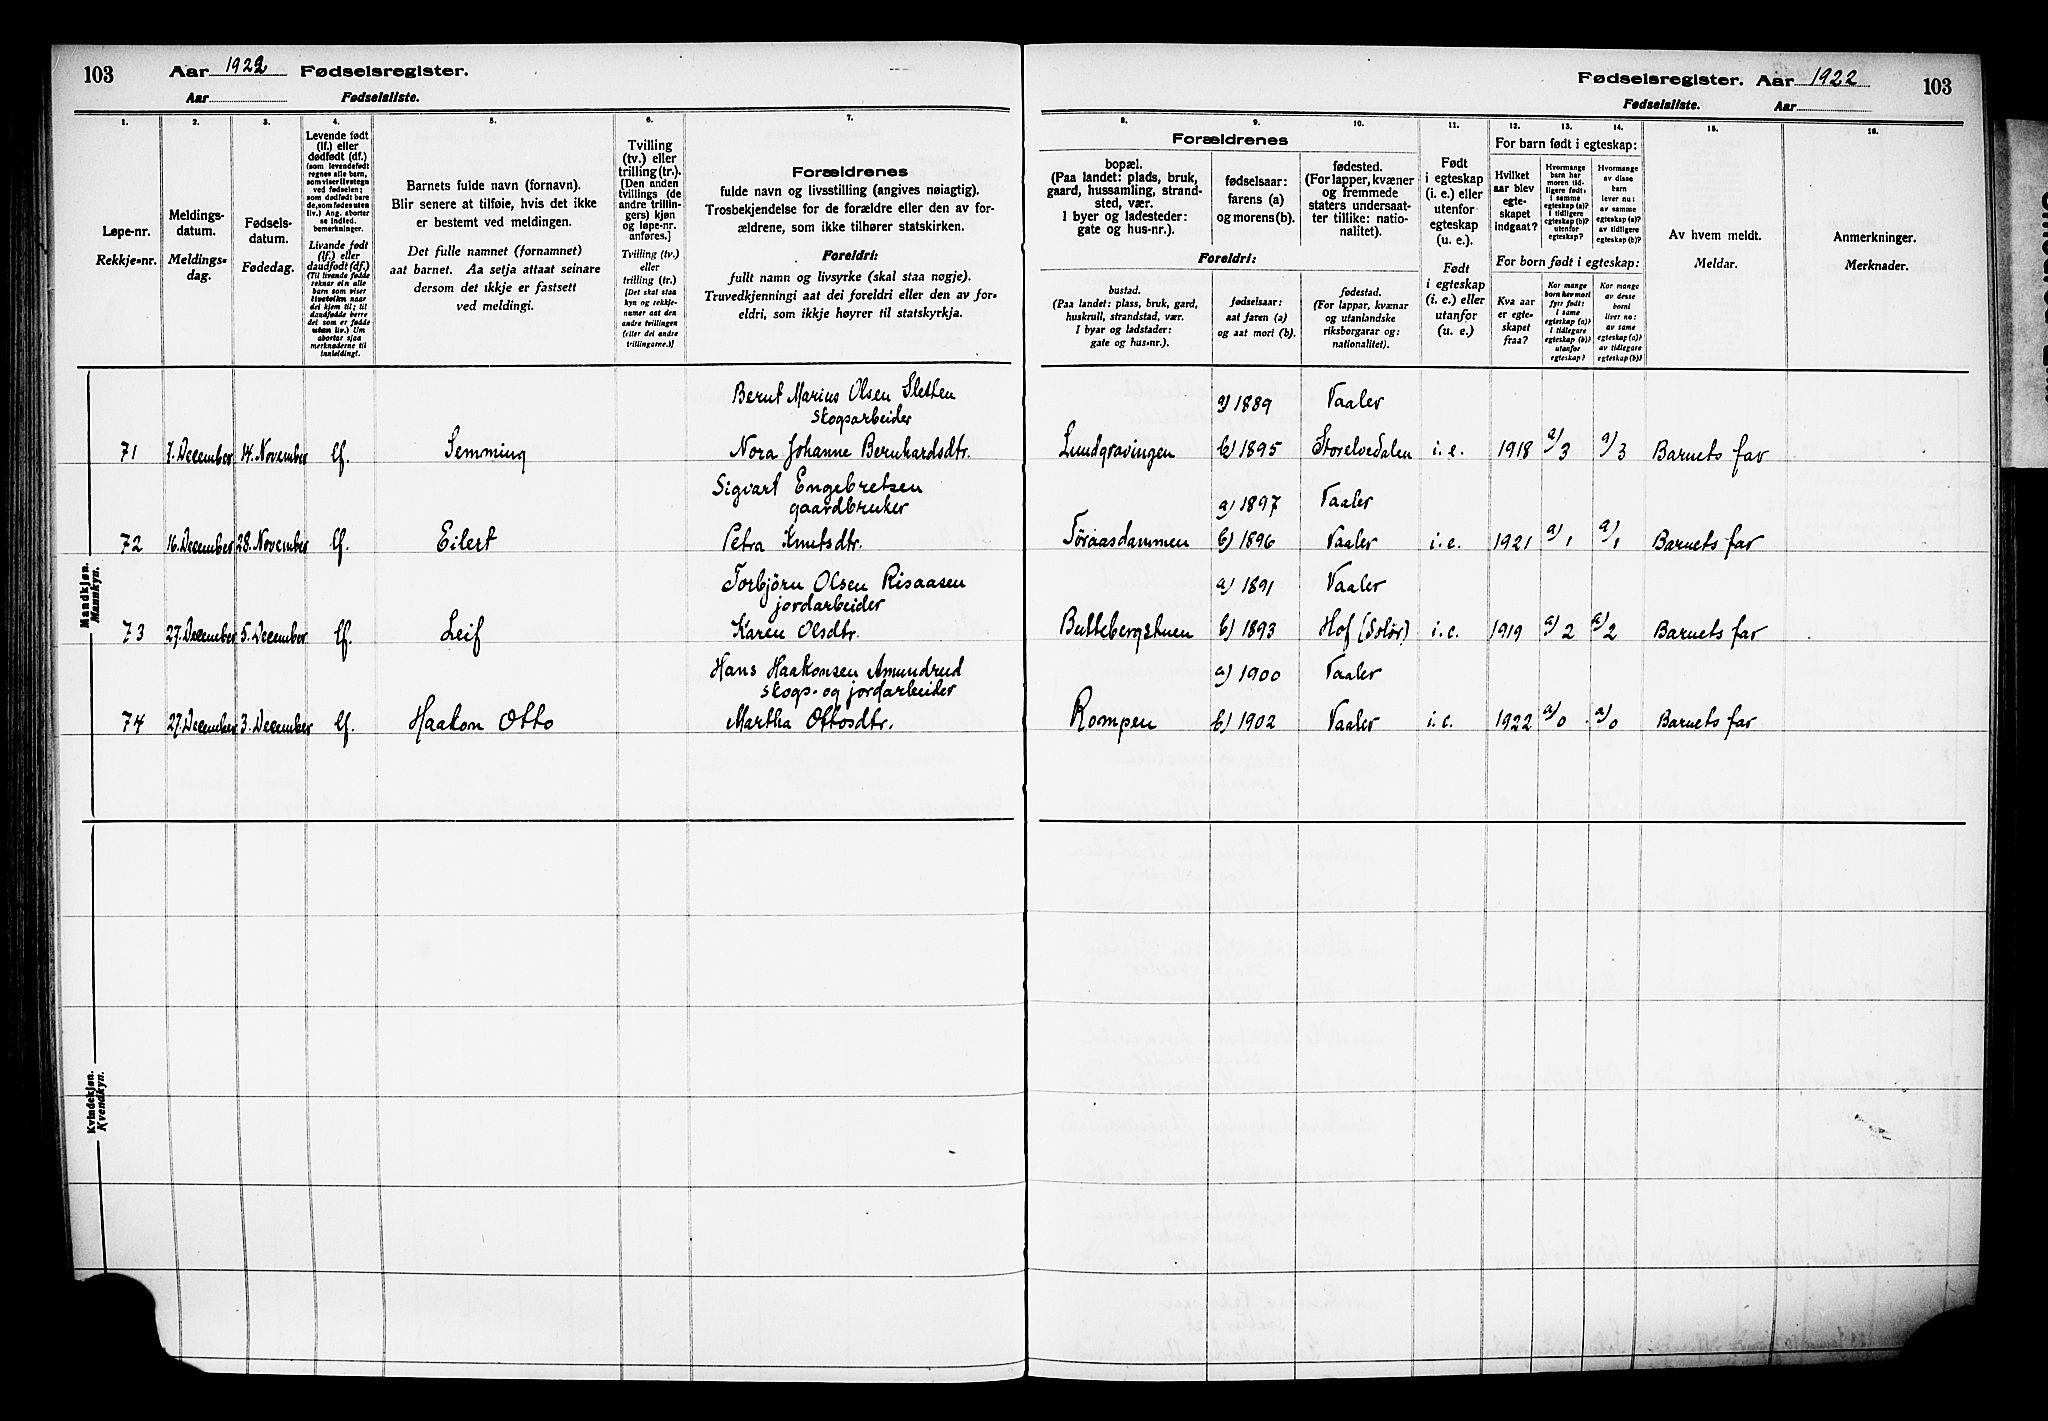 103 Aar 1922 Fødselsregister.
Aar Fødselsliste.
1. 2. 3. 4. 5. 6. 7.
Løpe-nr.
Rekkje-nr.
Meldings-
datum.
Meldings-
dag.
Fødsels-
datum.
Fødedag.
Levende født
(lf.) eller
dødfødt (df.)
(som levendefødt
regnes alle barn,
som viser livstegn
ved fødselen;
som dødfødt bare
de, som fødes uten
liv.) Ang. aborter
se indled.
bemerkninger.
Livande født
(lf.) eller
daudfødt (df.)
(Til livande fødde
reknar ein alle
born som viser
livsteikn naar
dei kjem til; til
daudfødde berre
dei som er fødde
utan liv.) Um
abortar sjaa
merknaderne til
innleiding!
Barnets fulde navn (fornavn).
Blir senere at tilføie, hvis det ikke
er bestemt ved meldingen.
Det fulle namnet (fornamnet)
aat barnet. Aa setja attaat seinare
dersom det ikkje er fastsett
ved meldingi.
Tvilling
(tv.) eller
trilling (tr.).
[Den anden
tvillings (de
andre trillin-
gers) kjøn
og løpe-nr.
anføres.]
Tvilling (tv.)
eller
trilling (tr.)
[Det skal staa
kyn og rekkje-
numer aat den
andre tvillingen
(eller dei andre
trillingarne.)]
Forældrenes
fulde navn og livsstilling (angives nøiagtig).
Trosbekjendelse for de forældre eller den av for-
ældrene, som ikke tilhører statskirken.
Foreldri:
fullt namn og livsyrke (skal staa nøgje).
Truvedkjenningi aat dei foreldri eller den av for-
eldri, som ikkje høyrer til statskyrkja.
Mandkjøn.
Mannkyn.
Bernt Marius Olsen Sletten
skogsarbeider
71 7. December 14. November lf. Semming Nora Johanne Bernhardsdtr.
Sigvart Engebretsen
gaardbruker
72 16. December 28. November lf. Eilert Petra Knutsdtr.
Torbjörn Olsen Risaasen
jordarbeider
73 27. December 5. December lf. Leif Karen Olsdtr.
Hans Haakonsen Amundrud
skogs- og jordarbeider
74 27. December 3. December lf. Haakon Otto Martha Ottosdtr.
Kvindekjøn.
Kvendkyn.
Fødselsregister. Aar 1922 103
Fødselsliste. Aar
8. 9. 10. 11. 12. 13. 14. 15. 16.
Forældrenes
bopæl.
(Paa landet: plads, bruk,
gaard, hussamling, strand-
sted, vær.
I byer og ladesteder:
gate og hus-nr.).
fødselsaar:
farens (a)
og morens (b).
fødested.
(For lapper, kvæner
og fremmede
staters undersaat-
ter tillike: natio-
nalitet).
Foreldri:
bustad.
(Paa landet: plass, bruk, gard,
huskrull, strandstad, vær.
I byar og ladstader:
gate og hus-nr.).
fødselsaar:
aat faren (a)
og aat mori (b).
fødestad.
(For lappar, kvænar
og utanlandske
riksborgarar og:
nationalitet).
Født
i egteskap
(i. e.) eller
utenfor
egteskap
(u. e.).
Født
i egteskap
(i. e.) eller
utanfor
(u. e.)
For barn født i egteskap:
Hvilket
aar blev
egte-
skapet
indgaat?
Hvormange
barn har
moren tid-
ligere født:
i samme
egteskap (a)?
i tidligere
egteskap (b)?
utenfor
egteskap?
Hvormange
av disse
barn
lever nu:
av samme
egteskap (a)?
av tidligere
egteskap (b)?
For born født i egteskap:
Kva aar
er egte-
skapet
fraa?
Kor mange
born hev mori
fyrr født:
i same
egteskap (a)?
i tidlegare
egteskap (b)?
utanfor
egteskap?
Kor mange
av desse
borni
liver no:
av same
egteskap (a)?
av tidlegare
egteskap (b)?
Av hvem meldt.
Meldar.
Anmerkninger.
Merknader.
a) 1889 Vaaler
Lundgravingen b) 1895 Storelvedalen i.e. 1918 a/3 a/3 Barnets far
a) 1897 Vaaler
Töraasdammen b) 1896 Vaaler i.e. 1921 a/1 a/1 Barnets far
a) 1891 Vaaler
Buttebergstuen b) 1893 Hof (Solör) i.e. 1919 a/2 a/2 Barnets far
a) 1900 Vaaler
Rompen b) 1902 Vaaler i.e. 1922 a/0 a/0 Barnets far